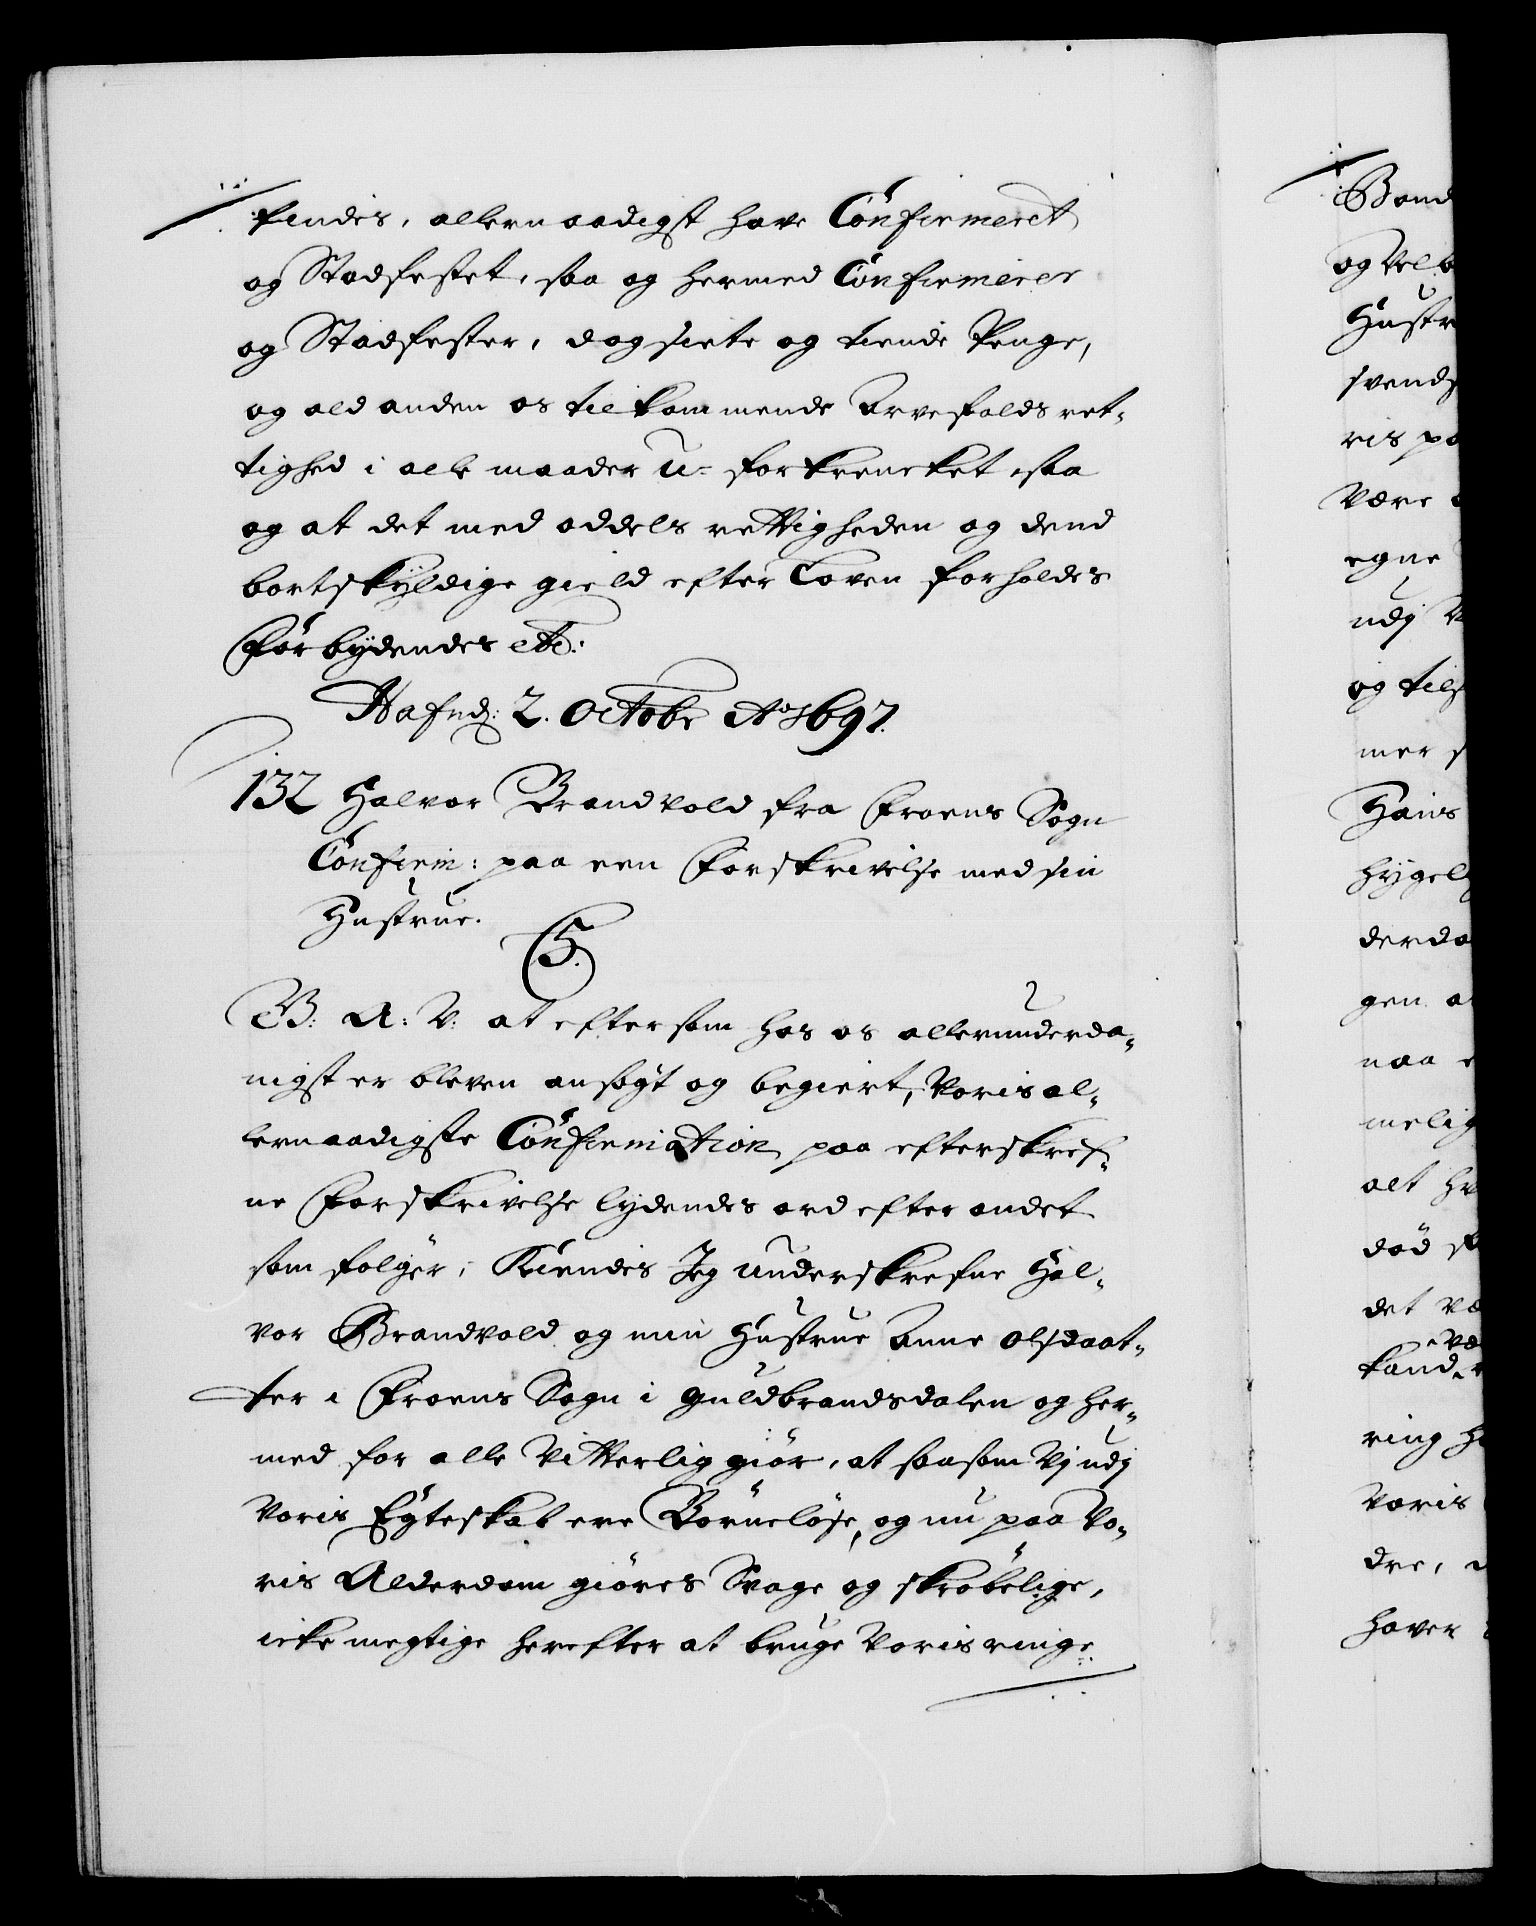 findes, allernaadigst have Confirmeret
og Stadfestet, saa og hermed Confirmerer
og Stadfester, dog siette og tiende Penge,
og ald anden os tilkommende Arvefalds ret-
tighed i alle maader u-forkrencket, saa
og at det med oddels rettigheden og dend
bortskÿldige gield efter Loven forholdes
Forbÿdendes etc:
Hafnd: 2. Octobr Ao 1697.
132 Halvor Brandvold fra Froens Sogn
Confirm: paa een Forskrivelse med sin
Hustrue.
C5.
G: A: V: at eftersom hos os allerunderda-
nigst er bleven ansøgt og begiert, Voris al-
lernaadigste Confirmation paa efterskref-
ne Forskrivelse lydendes ord efter andet
som følger, Kiendes Jeg underskrefne Hal-
vor Brandvold og min Hustrue Anne Olsdaat-
ter i Froens Sogn i Guldbrandsdalen og her-
med for alle Vitterlig giør, at saasom Vj udj
Voris Egteskab ere Børneløse, og nu paa Vo-
ris Alderdom giøres Svage og skrøbelige,
icke megtige herefter at bruge Voris ringe
Band
og Vel
Hustr
svends
ris pa
Være
egne
udj
og tils
mer
Hans
hÿgel
derda
gen
naa
melig
alt
død
det
kand
ring
Voris
dre,
haver